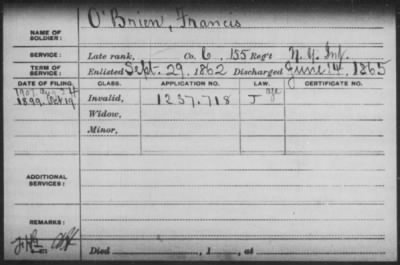 O'Brien, Francis
NAME OF
SOLDIER:
SERVICE: Late rank, Co. 6, 155 Reg't N.Y. Inf.
TERM OF
SERVICE: Enlisted Sept. 29, 1862 Discharged June 14, 1865
DATE OF FILING. CLASS. APPLICATION NO. LAW. CERTIFICATE NO.
1907, Aug 24
1899, Oct 19 Invalid, 1237.718 J age
Widow,
Minor,
ADDITIONAL
SERVICES:
REMARKS:
Died , 1 , at